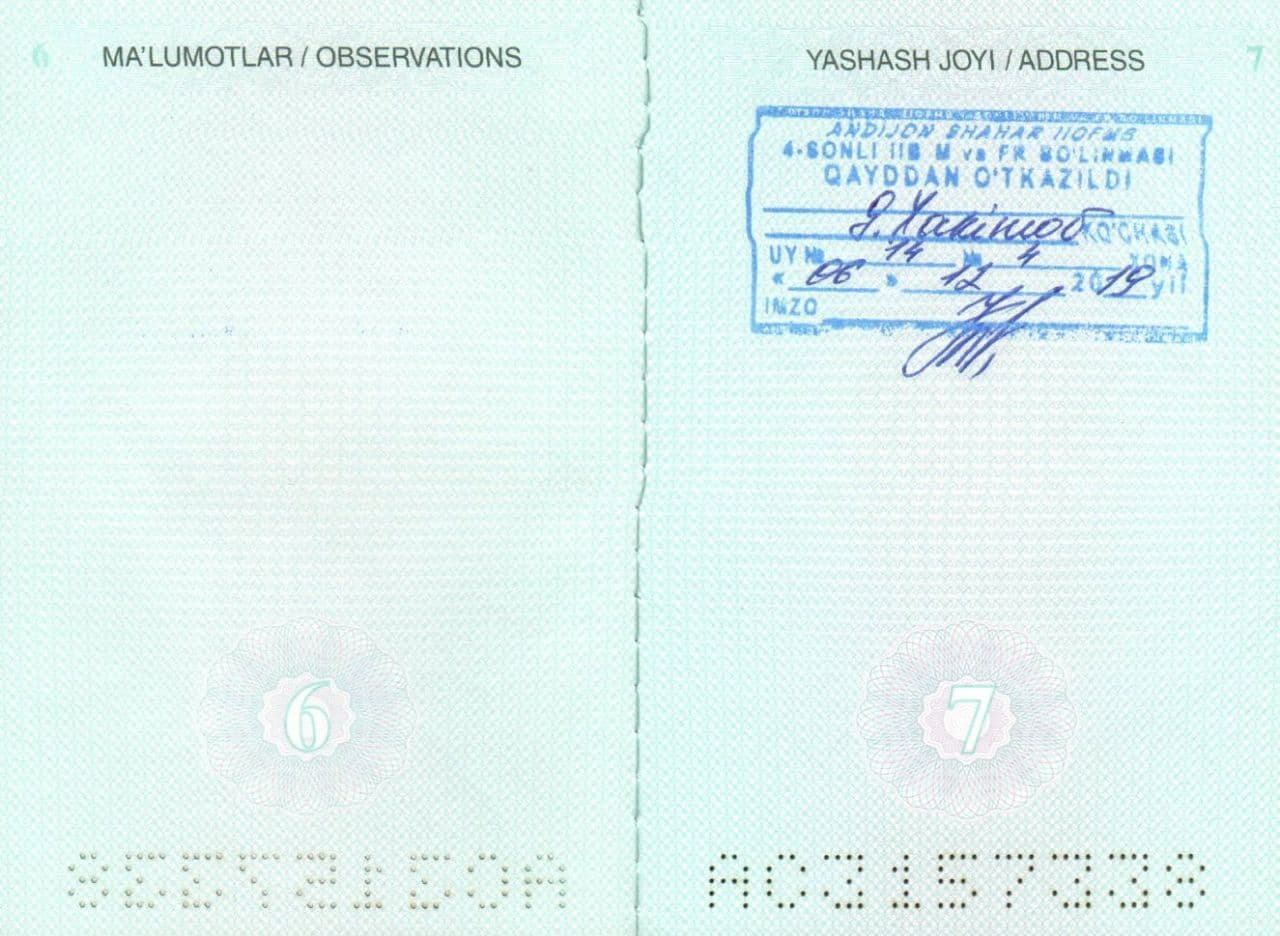 6
MA'LUMOTLAR / OBSERVATIONS
6
YASHASH JOYI / ADDRESS
7
ANDIJON SHAHAR IIOFMB
4-SONLI IIB M va FR BO'LINMASI
QAYDDAN O'TKAZILDI
KO'CHASI
UY № 14 № 4 XONA
« 06 » 12 2019 yil
IMZO
7
AC3157338